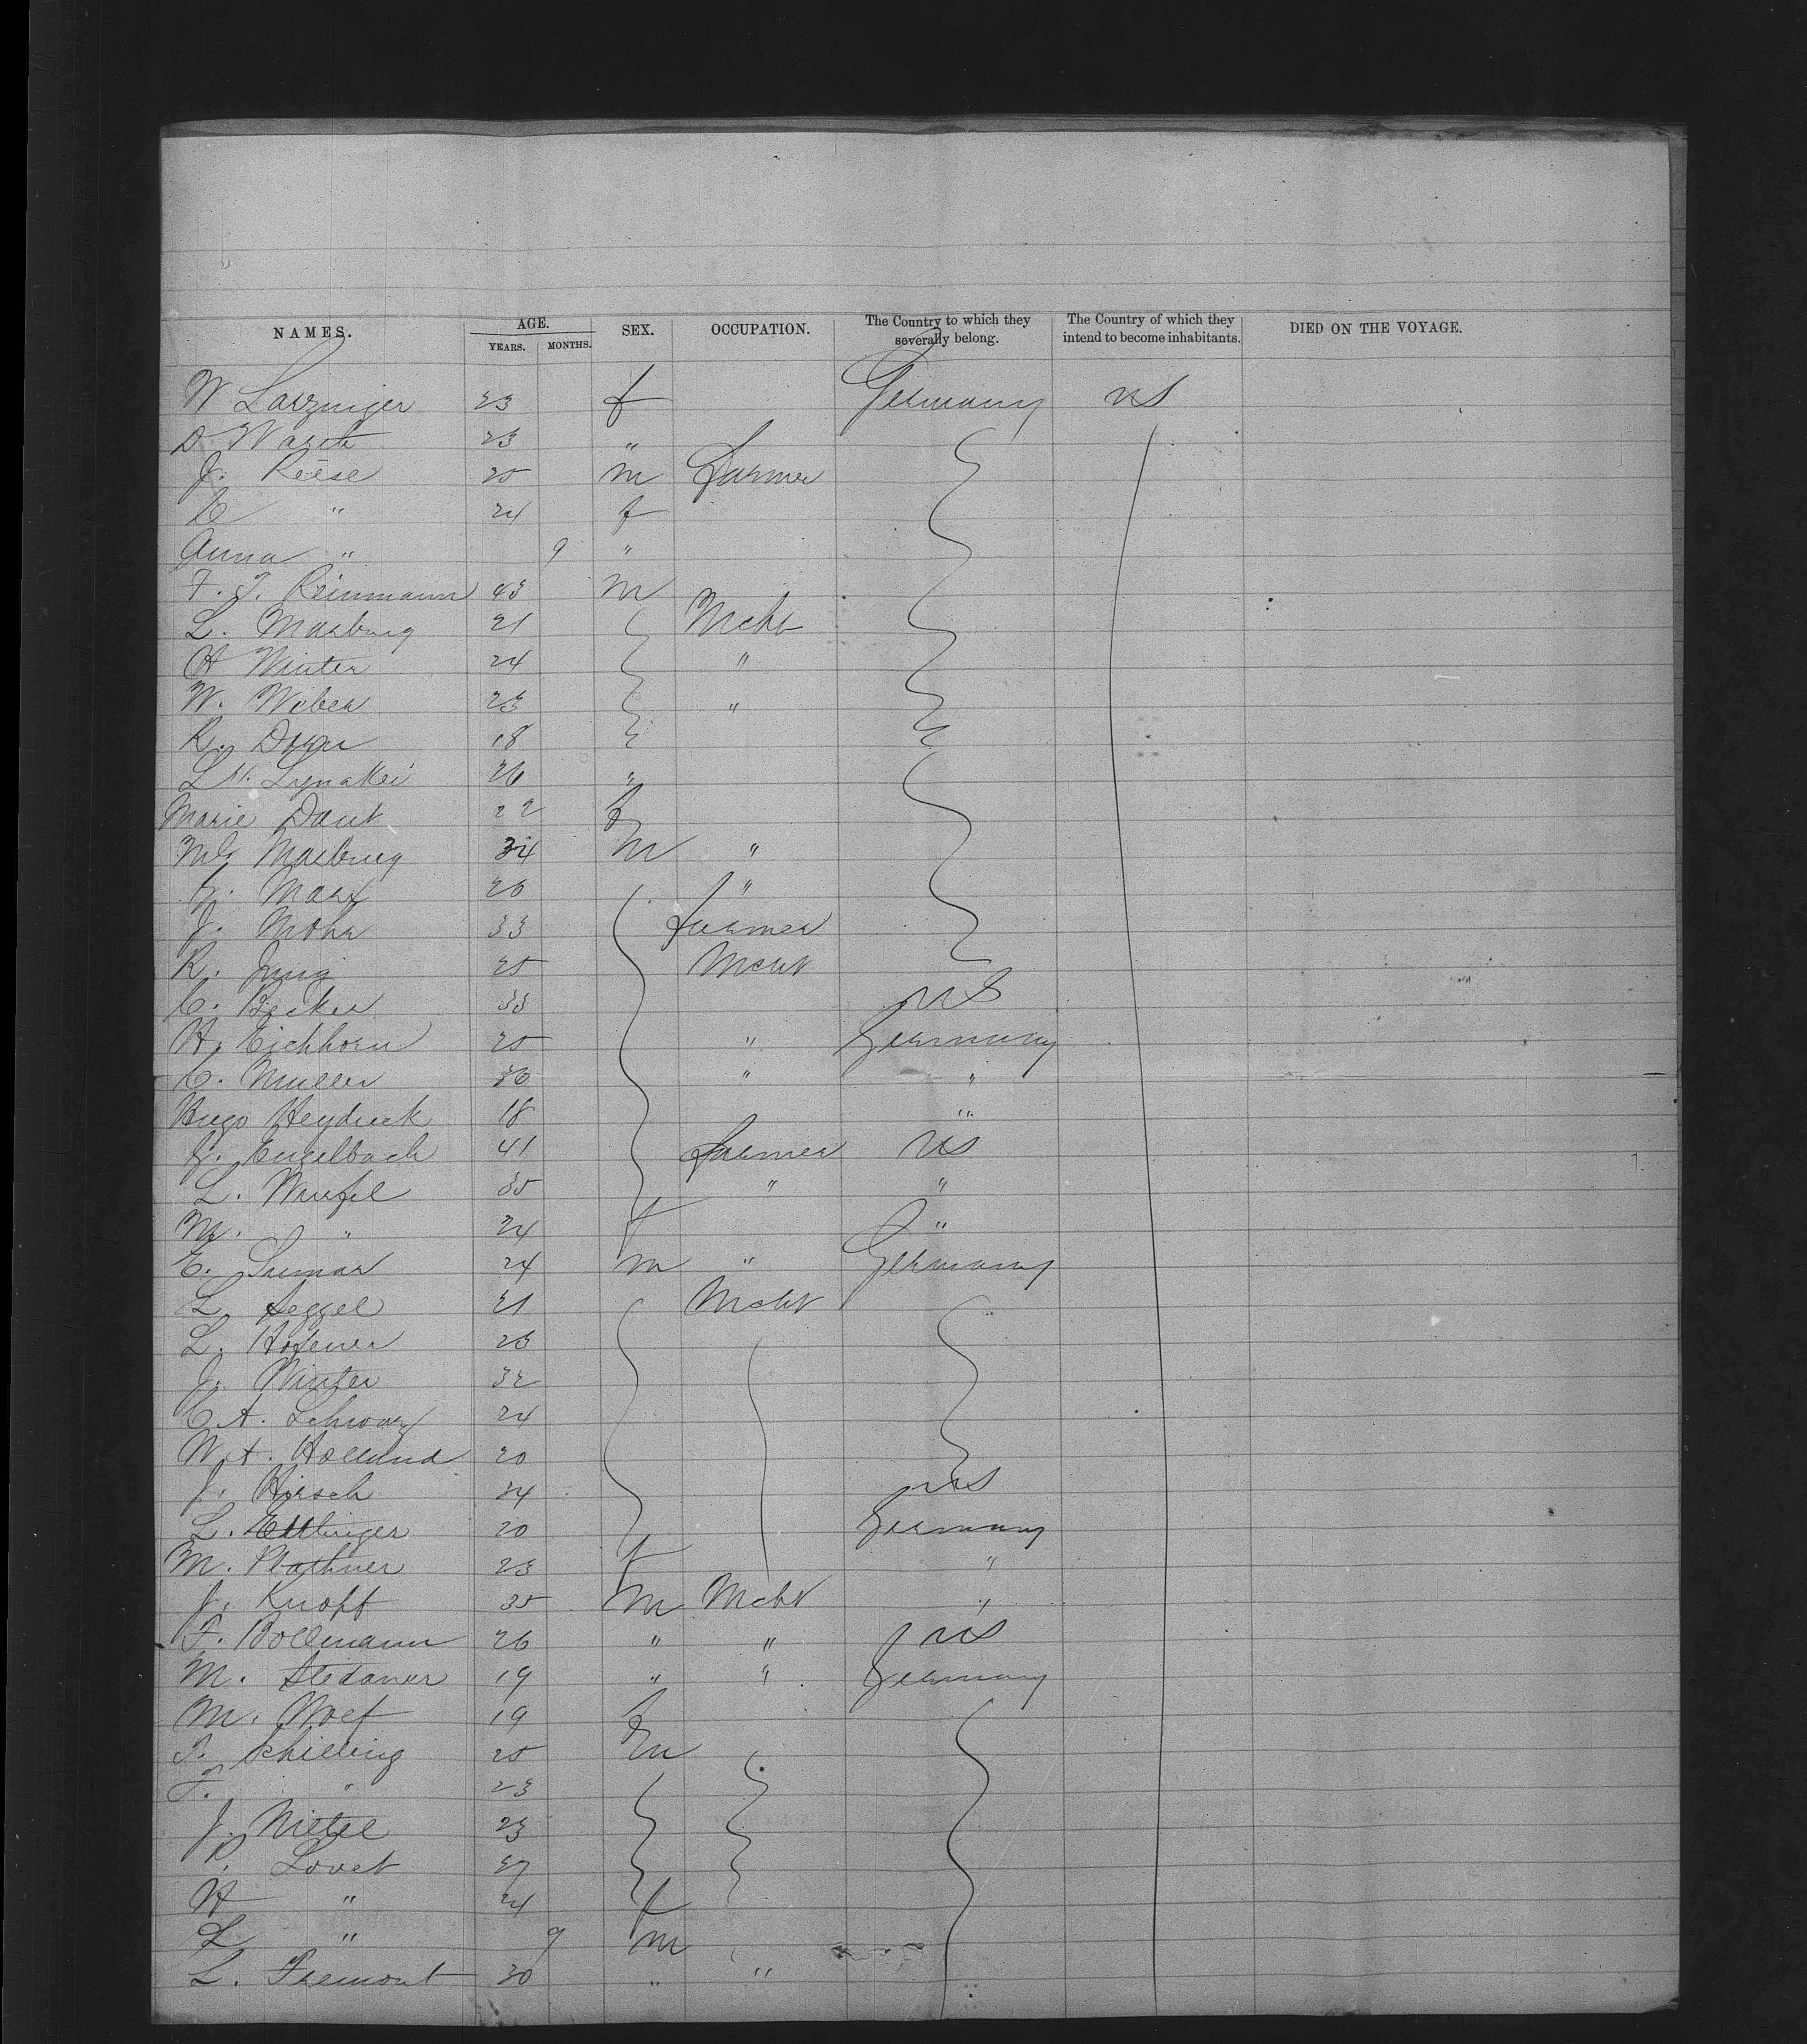 NAMES. AGE. YEARS. MONTHS. SEX. OCCUPATION. The Country to which they severally belong. The Country of which they intend to become inhabitants. DIED ON THE VOYAGE.
W 23 f Germany US
D 23 "
J. Reese 25 m Farmer
" 24 f
Anna " 9 "
F. T. Reinmann 43 m
L. Marburg 21 Mcht
H Winter 24 "
W. Weber 23 "
R. 18
26 "
Marie Daut 22 f
Marburg 34 m "
Marx 26 "
J. Mohr 33 Farmer
R. Jung 25 Mcht
C. Becker 33 US
H. Eichhorn 25 " Germany
C. Muller 30 " "
Hugo 18 "
Engelbach 41 Farmer US
L. 35 " "
M. " 24 f "
E. 24 m " Germany
L. 21 Mcht
L. 23
J. Winter 32
C A. Schwarz 24
W. A. Holland 20
J. Hirsch 34 US
L. Ettlinger 20 Germany
M. Plathner 23 f "
J. Knopf 35 m Mcht "
F. Bollmann 26 " " US
M. 19 " " Germany
M. Wolf 19 f
Schilling 25 m
F. " 23
J. 23
P. Lovet 27
H " 24 f
L " 9 m
L. Fremont 30 " "